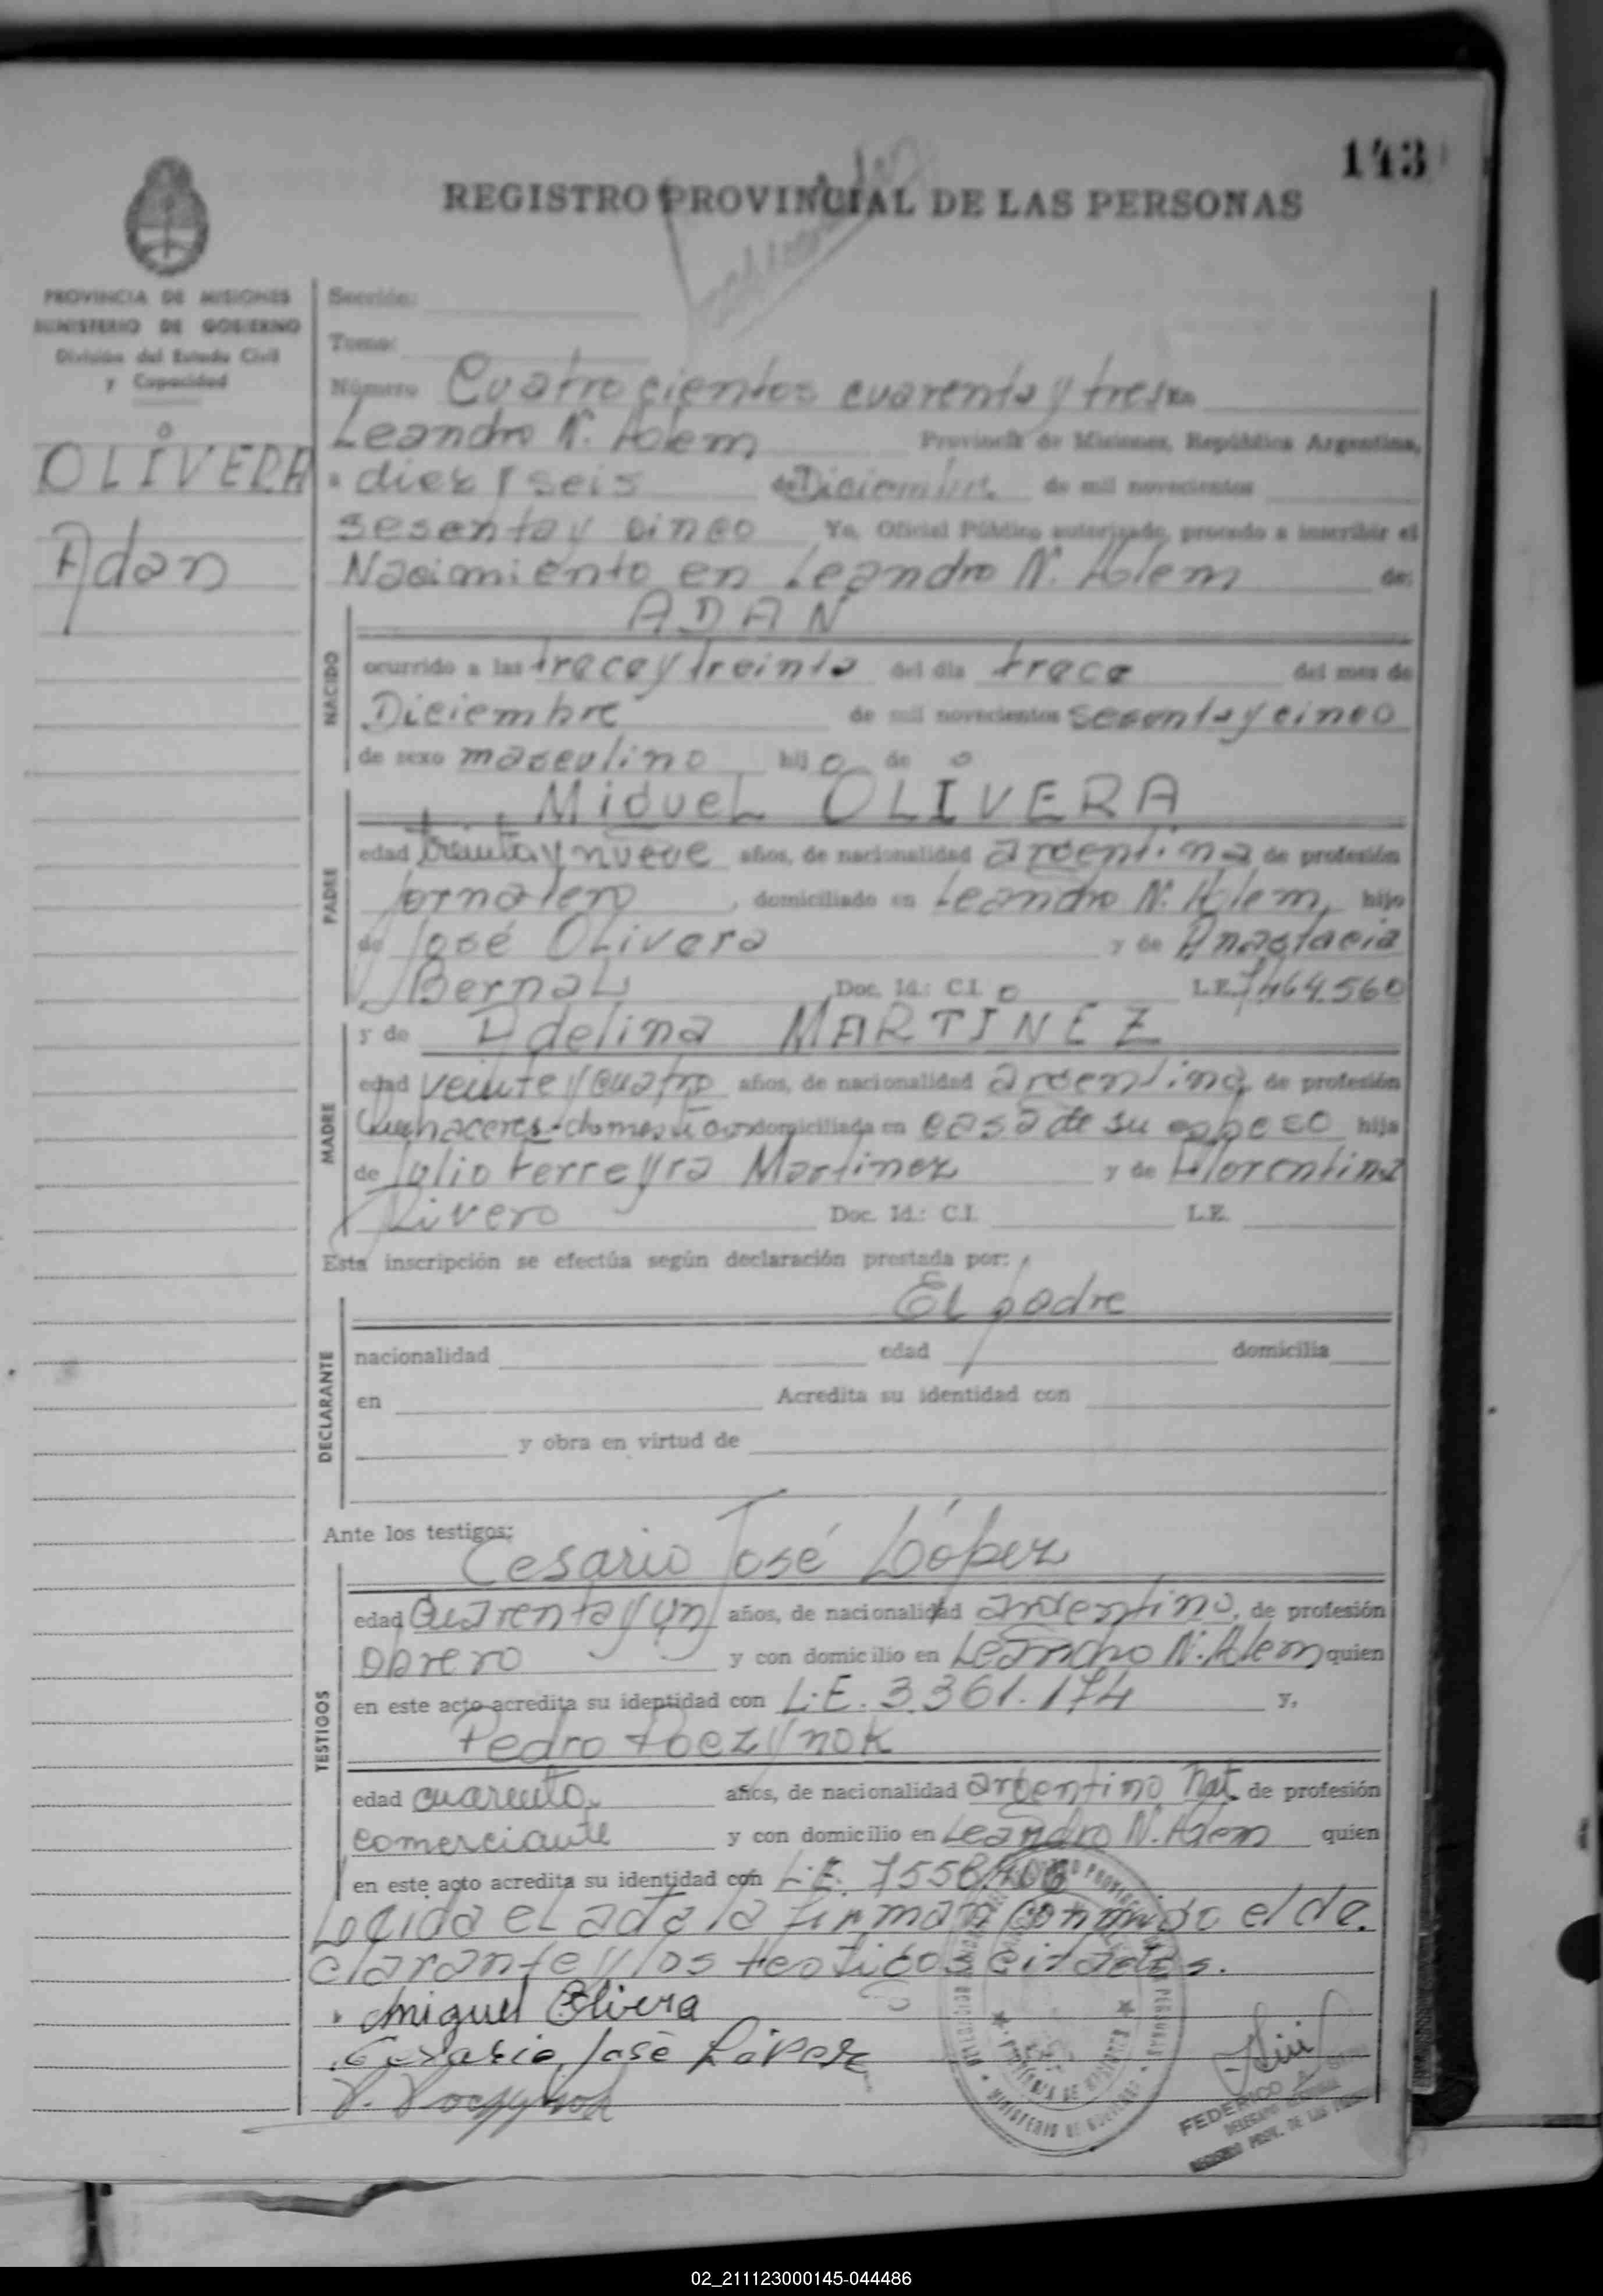 143
REGISTRO PROVINCIAL DE LAS PERSONAS
PROVINCIA DE MISIONES
MINISTERIO DE GOBIERNO
División del Estado Civil
y Capacidad
OLIVERA
Adan
Sección:
Tomo:
Número Cuatrocientos cuarenta y tres En
Leandro N. Alem Provincia de Misiones, República Argentina,
a diez y seis de Diciembre de mil novecientos
sesenta y cinco Yo, Oficial Público autorizado, procedo a inscribir el
Nacimiento en Leandro N. Alem de:
ADAN
NACIDO
ocurrido a las trece y treinta del día trece del mes de
Diciembre de mil novecientos sesenta y cinco
de sexo masculino hijo de
PADRE
Miguel OLIVERA
edad treinta y nueve años, de nacionalidad argentina de profesión
Jornalero, domiciliado en Leandro N. Alem, hijo
de José Olivera y de Anastacia
Bernal Doc. Id.: C.I. L.E. 7464.560
MADRE
y de Adelina MARTINEZ
edad veinte y cuatro años, de nacionalidad argentina, de profesión
Quehaceres domesticos domiciliada en casa de su esposo hija
de Julio Ferreyra Martinez y de Florentina
Rivero Doc. Id.: C.I. L.E.
Esta inscripción se efectúa según declaración prestada por:
DECLARANTE
El padre
nacionalidad edad domicilia
en Acredita su identidad con
y obra en virtud de
Ante los testigos:
TESTIGOS
Cesario José López
edad Cuarenta y un años, de nacionalidad argentino, de profesión
Obrero y con domicilio en Leandro N. Alem quien
en este acto acredita su identidad con L.E. 3.361.174 y,
Pedro
edad cuarenta años, de nacionalidad argentino Nat. de profesión
comerciante y con domicilio en Leandro N. Alem quien
en este acto acredita su identidad con L.E.
Leida el acta la firman conmigo el de
clarante y los testigos citados.
Miguel Olivera
Cesario José López
FEDERICO
02_211123000145-044486